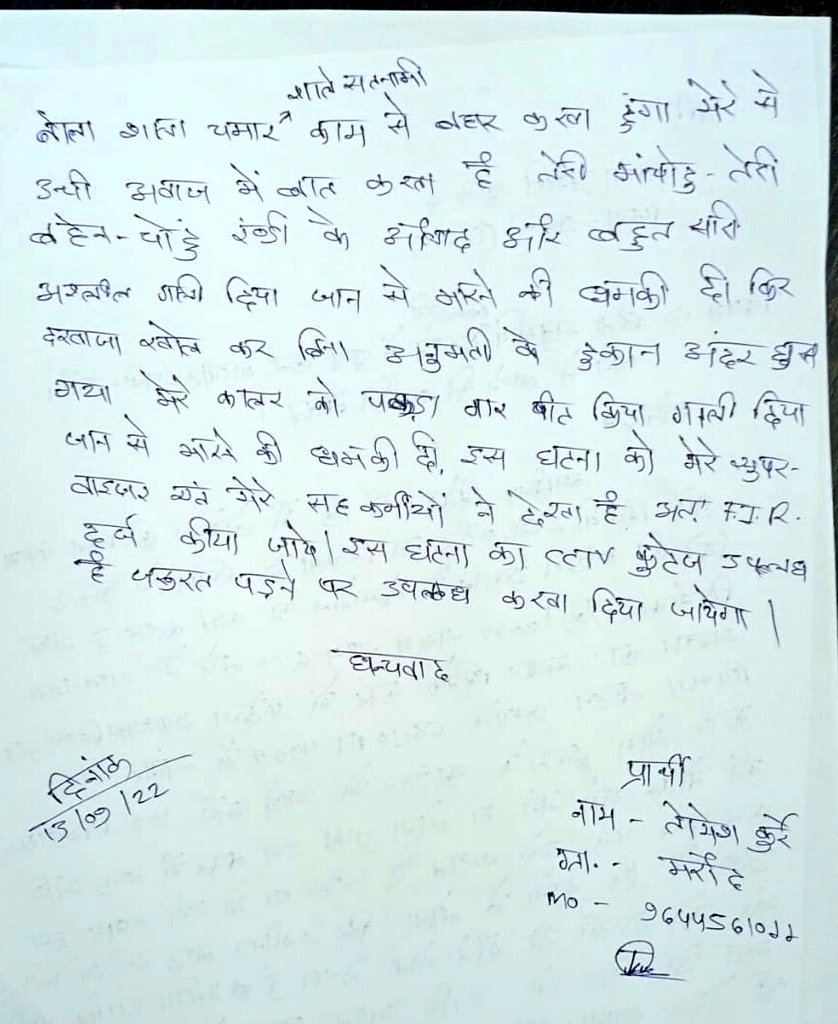 साले सतनामी
बोला साला चमार काम से बहार करवा दुंगा मेरे से
उन्ची अवाज में बात करता है तेरी मांचोदु - तेरी
बहेन - चोदुं रंडी के औलाद और बहुत सारी
अश्लील गाली दिया जान से मारने की धमकी दी फिर
दरवाजा खोल कर बिना अनुमती के दुकान अंदर घुस
गया मेरे कालर को पकड़ा मार पीट किया गाली दिया
जान से मारने की धमकी दी, इस घटना को मेरे सुपर-
वाइजर एवं मेरे सह कर्मीयों ने देखा है अतः F.I.R.
दर्ज कीया जाये। इस घटना का CCTV फुटेज उपलब्ध
है जरुरत पड़ने पर उपलब्ध करवा दिया जायेगा।
धन्यवाद
दिनांक
13/09/22
प्रार्थी
नाम - तोमेश कुर्रे
ग्रा. - मर्रोद
mo - 9644561022